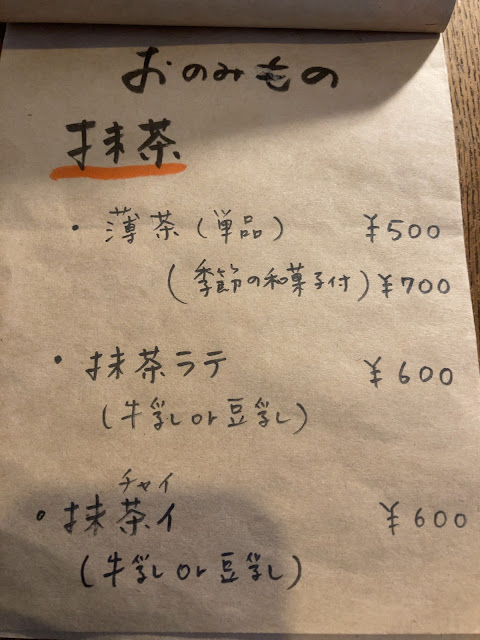 おのみもの
抹茶
・薄茶(単品) ¥500
(季節の和菓子付) ¥700
・抹茶ラテ ¥600
(牛乳 or 豆乳)
チャイ
・抹茶イ ¥600
(牛乳 or 豆乳)